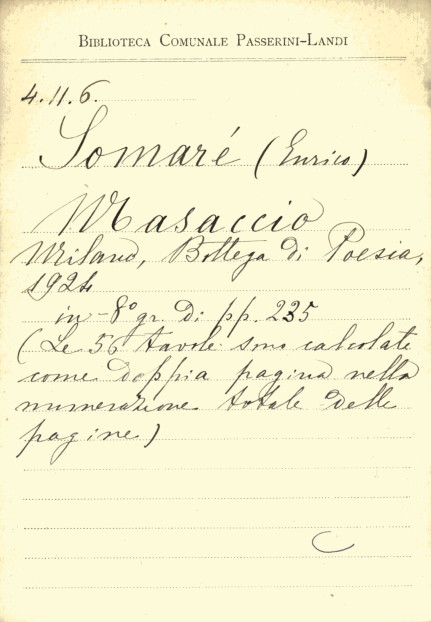 BIBLIOTECA COMUNALE PASSERINI-LANDI
4.11.6.
Somaré (Enrico)
Masaccio
Milano, Bottega di Poesia,
1924
in-8° gr. di pp. 235
(Le 56 tavole sono calcolate
come doppia pagina nella
numerazione totale delle
pagine)